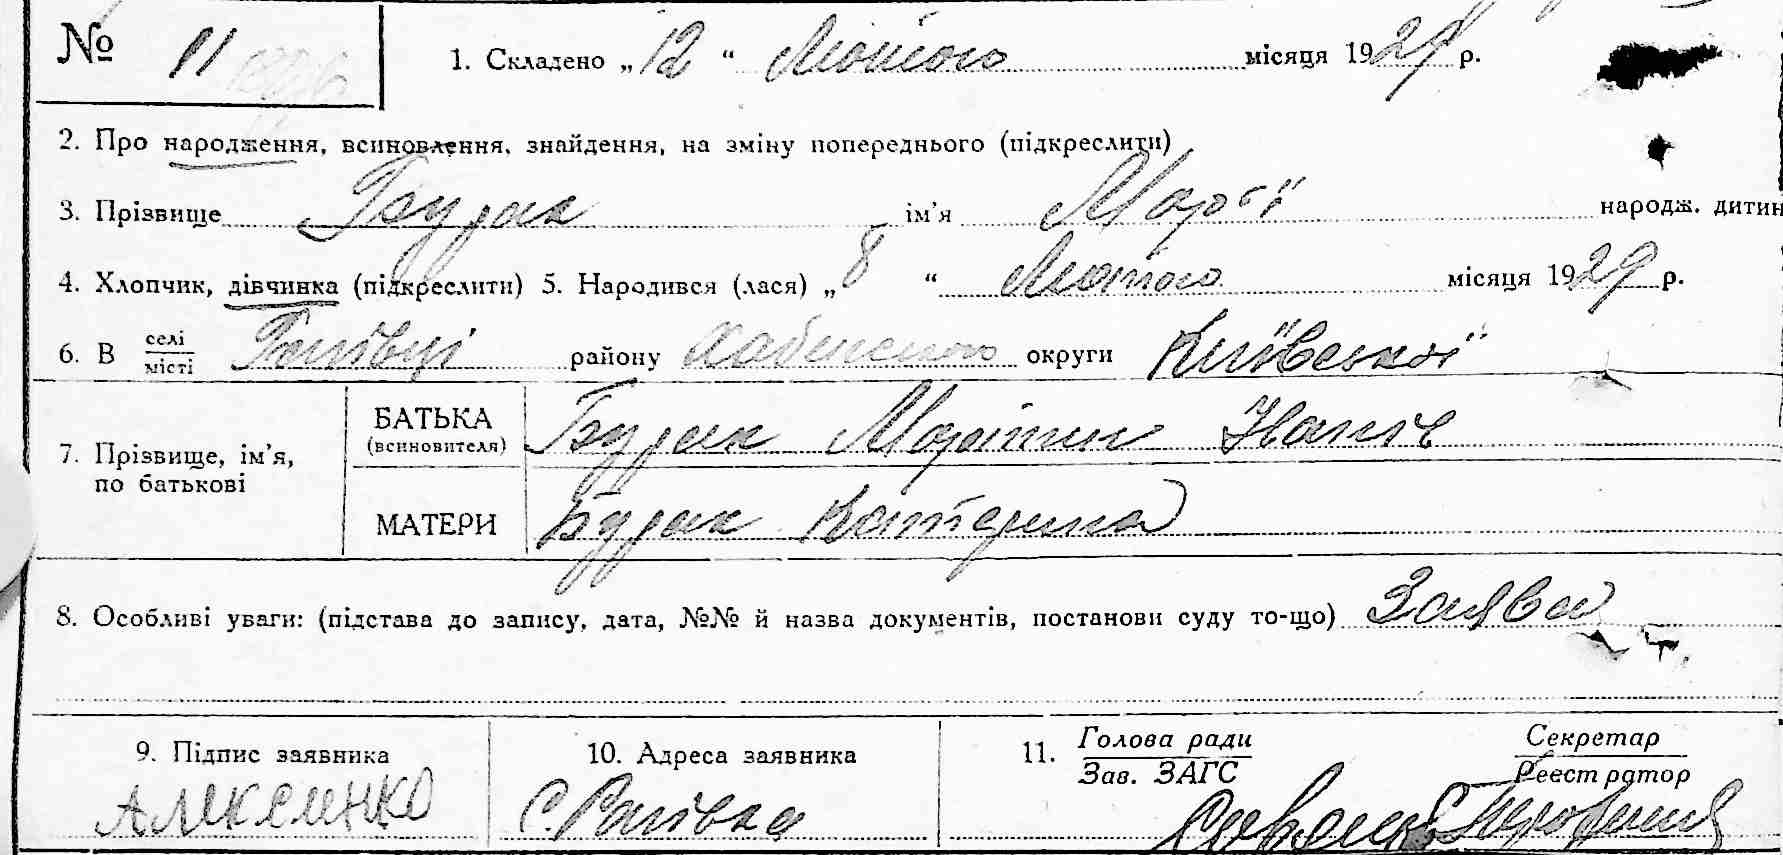 № 11 1. Складено „12“ Лютого місяця 1929 р.
2. Про народження, всиновлення, знайдення, на зміну попереднього (підкреслити)
3. Прізвище Бурак ім'я Марії народж. дитин
4. Хлопчик, дівчинка (підкреслити) 5. Народився (лася) „8“ Лютого місяця 1929 р.
6. В селі
місті району Хабенського округи Київської
7. Прізвище, ім'я,
по батькові
БАТЬКА
(всиновителя) Бурак Мартин
МАТЕРИ Бурак Катерина
8. Особливі уваги: (підстава до запису, дата, №№ й назва документів, постанови суду то-що) Заява
9. Підпис заявника
Алексеенко
10. Адреса заявника
С.
11. Голова ради
Зав. ЗАГС
Секретар
Реєстратор